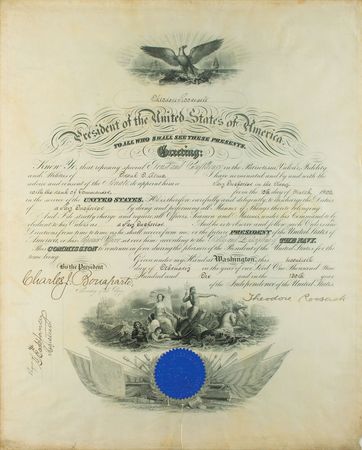 Theodore Roosevelt
President of the United States of America,
TO ALL WHO SHALL SEE THESE PRESENTS,
Greeting:
Know Ye, that reposing special Trust and Confidence in the Patriotism, Valor, Fidelity
and Abilities of I have nominated and by and with the
advice and consent of the Senate do appoint him a Pay Inspector in the Navy
with the rank of Commander from the day of March 1902
in the service of the UNITED STATES. He is therefore carefully and diligently to discharge the Duties
of a Pay Inspector by doing and performing all Manner of Things thereto belonging.
And I do strictly charge and require all Officers, Seamen and Marines under his Command to be
obedient to his Orders as a Pay Inspector And he is to observe and follow such Orders and
Directions from time to time as he shall receive from me or the future PRESIDENT of the United States of
America, or his Superior Officer set over him, according to the Rules and Discipline of THE NAVY.
This COMMISSION to continue in force during the pleasure of the President of the United States for the
time being.
Given under my Hand at Washington, this
day of February in the year of our Lord One Thousand Nine
Hundred and Six and in the 130th
of the Independence of the United States.
By the President
Charles J. Bonaparte
Theodore Roosevelt